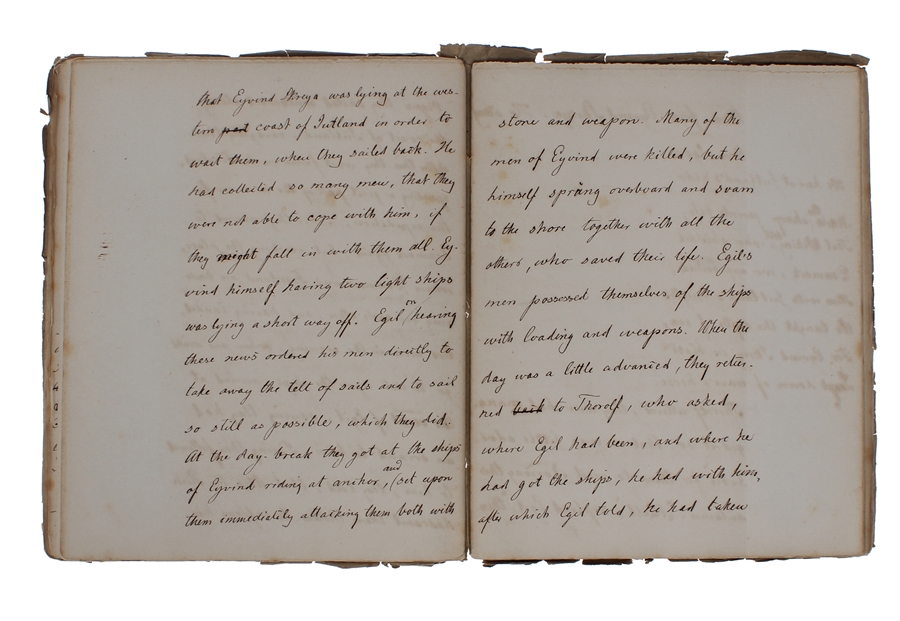 that Eyvind Skreya was lying at the wes-
tern part coast of Jutland in order to
wait them, when they sailed back. He
had collected so many men, that they
were not able to cope with him, if
they might fall in with them all. Ey-
vind himself having two light ships
was lying a short way off. Egil on hearing
these news ordered his men directly to
take away the telt of sails and to sail
so still as possible, which they did.
At the day-break they got at the ships
of Eyvind riding at anchor, and set upon
them immediately attacking them both with
stone and weapon. Many of the
men of Eyvind were killed, but he
himself sprang overboard and svam
to the shore together with all the
others, who saved their life. Egils
men possessed themselves of the ships
with loading and weapons. When the
day was a little advanced, they retur-
ned back to Thorolf, who asked,
where Egil had been, and where he
had got the ships, he had with him,
after which Egil told, he had taken